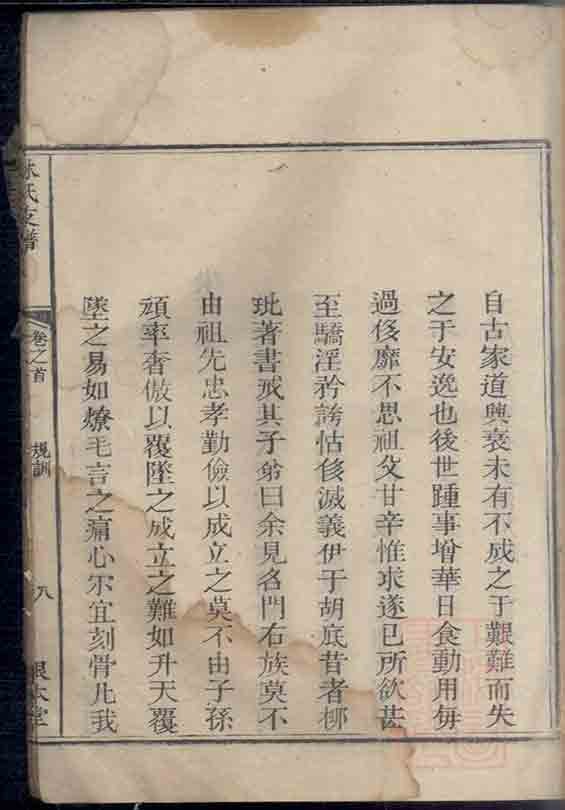 自古家道興衰未有不成之于艱難而失
之于安逸也後世踵事增華日食動用每
過侈靡不思祖父甘辛惟求遂已所欲甚
至驕淫矜誇怙侈滅義伊于胡底昔者柳
玭著書戒其子弟曰余見名門右族莫不
由祖先忠孝勤儉以成立之莫不由子孫
頑率奢傲以覆墜之成立之難如升天覆
墜之易如燎毛言之痛心尔宜刻骨凡我
氏支譜
卷之首
規訓
八
本堂